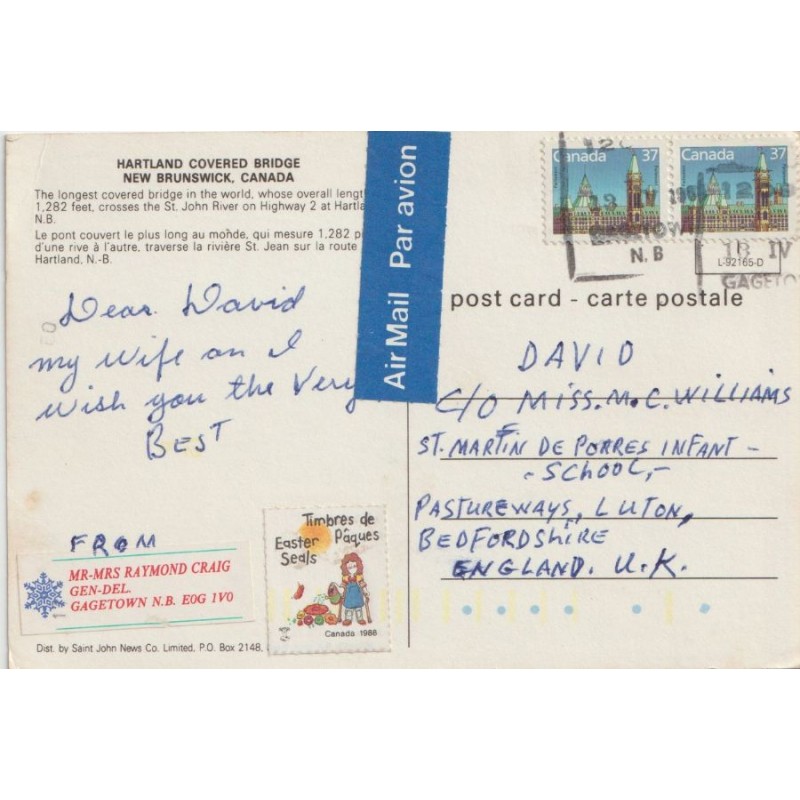 HARTLAND COVERED BRIDGE
NEW BRUNSWICK, CANADA
The longest covered bridge in the world, whose overall
1,282 feet, crosses the St. John River on Highway 2 at
N.B.
Le pont couvert le plus long au monde, qui mesure 1,282
d'une rive à l'autre, traverse la rivière St. Jean sur la route
Hartland, N.-B.
Dear David
my wife an I
wish you the Very
BEST
FROM
MR-MRS RAYMOND CRAIG
GEN-DEL.
GAGETOWN N.B. E0G 1V0
Dist. by Saint John News Co. Limited, P.O. Box 2148,
Timbres de
Pâques
Easter
Seals
Canada 1988
Air Mail Par avion
Canada 37
Canada 37
N.B
18 IV
L-92165-D
post card - carte postale
DAVID
C/O MISS. M. C. WILLIAMS
ST. MARTIN DE PORRES INFANT -
- SCHOOL, -
PASTUREWAYS, LUTON,
BEDFORDSHIRE
ENGLAND. U.K.